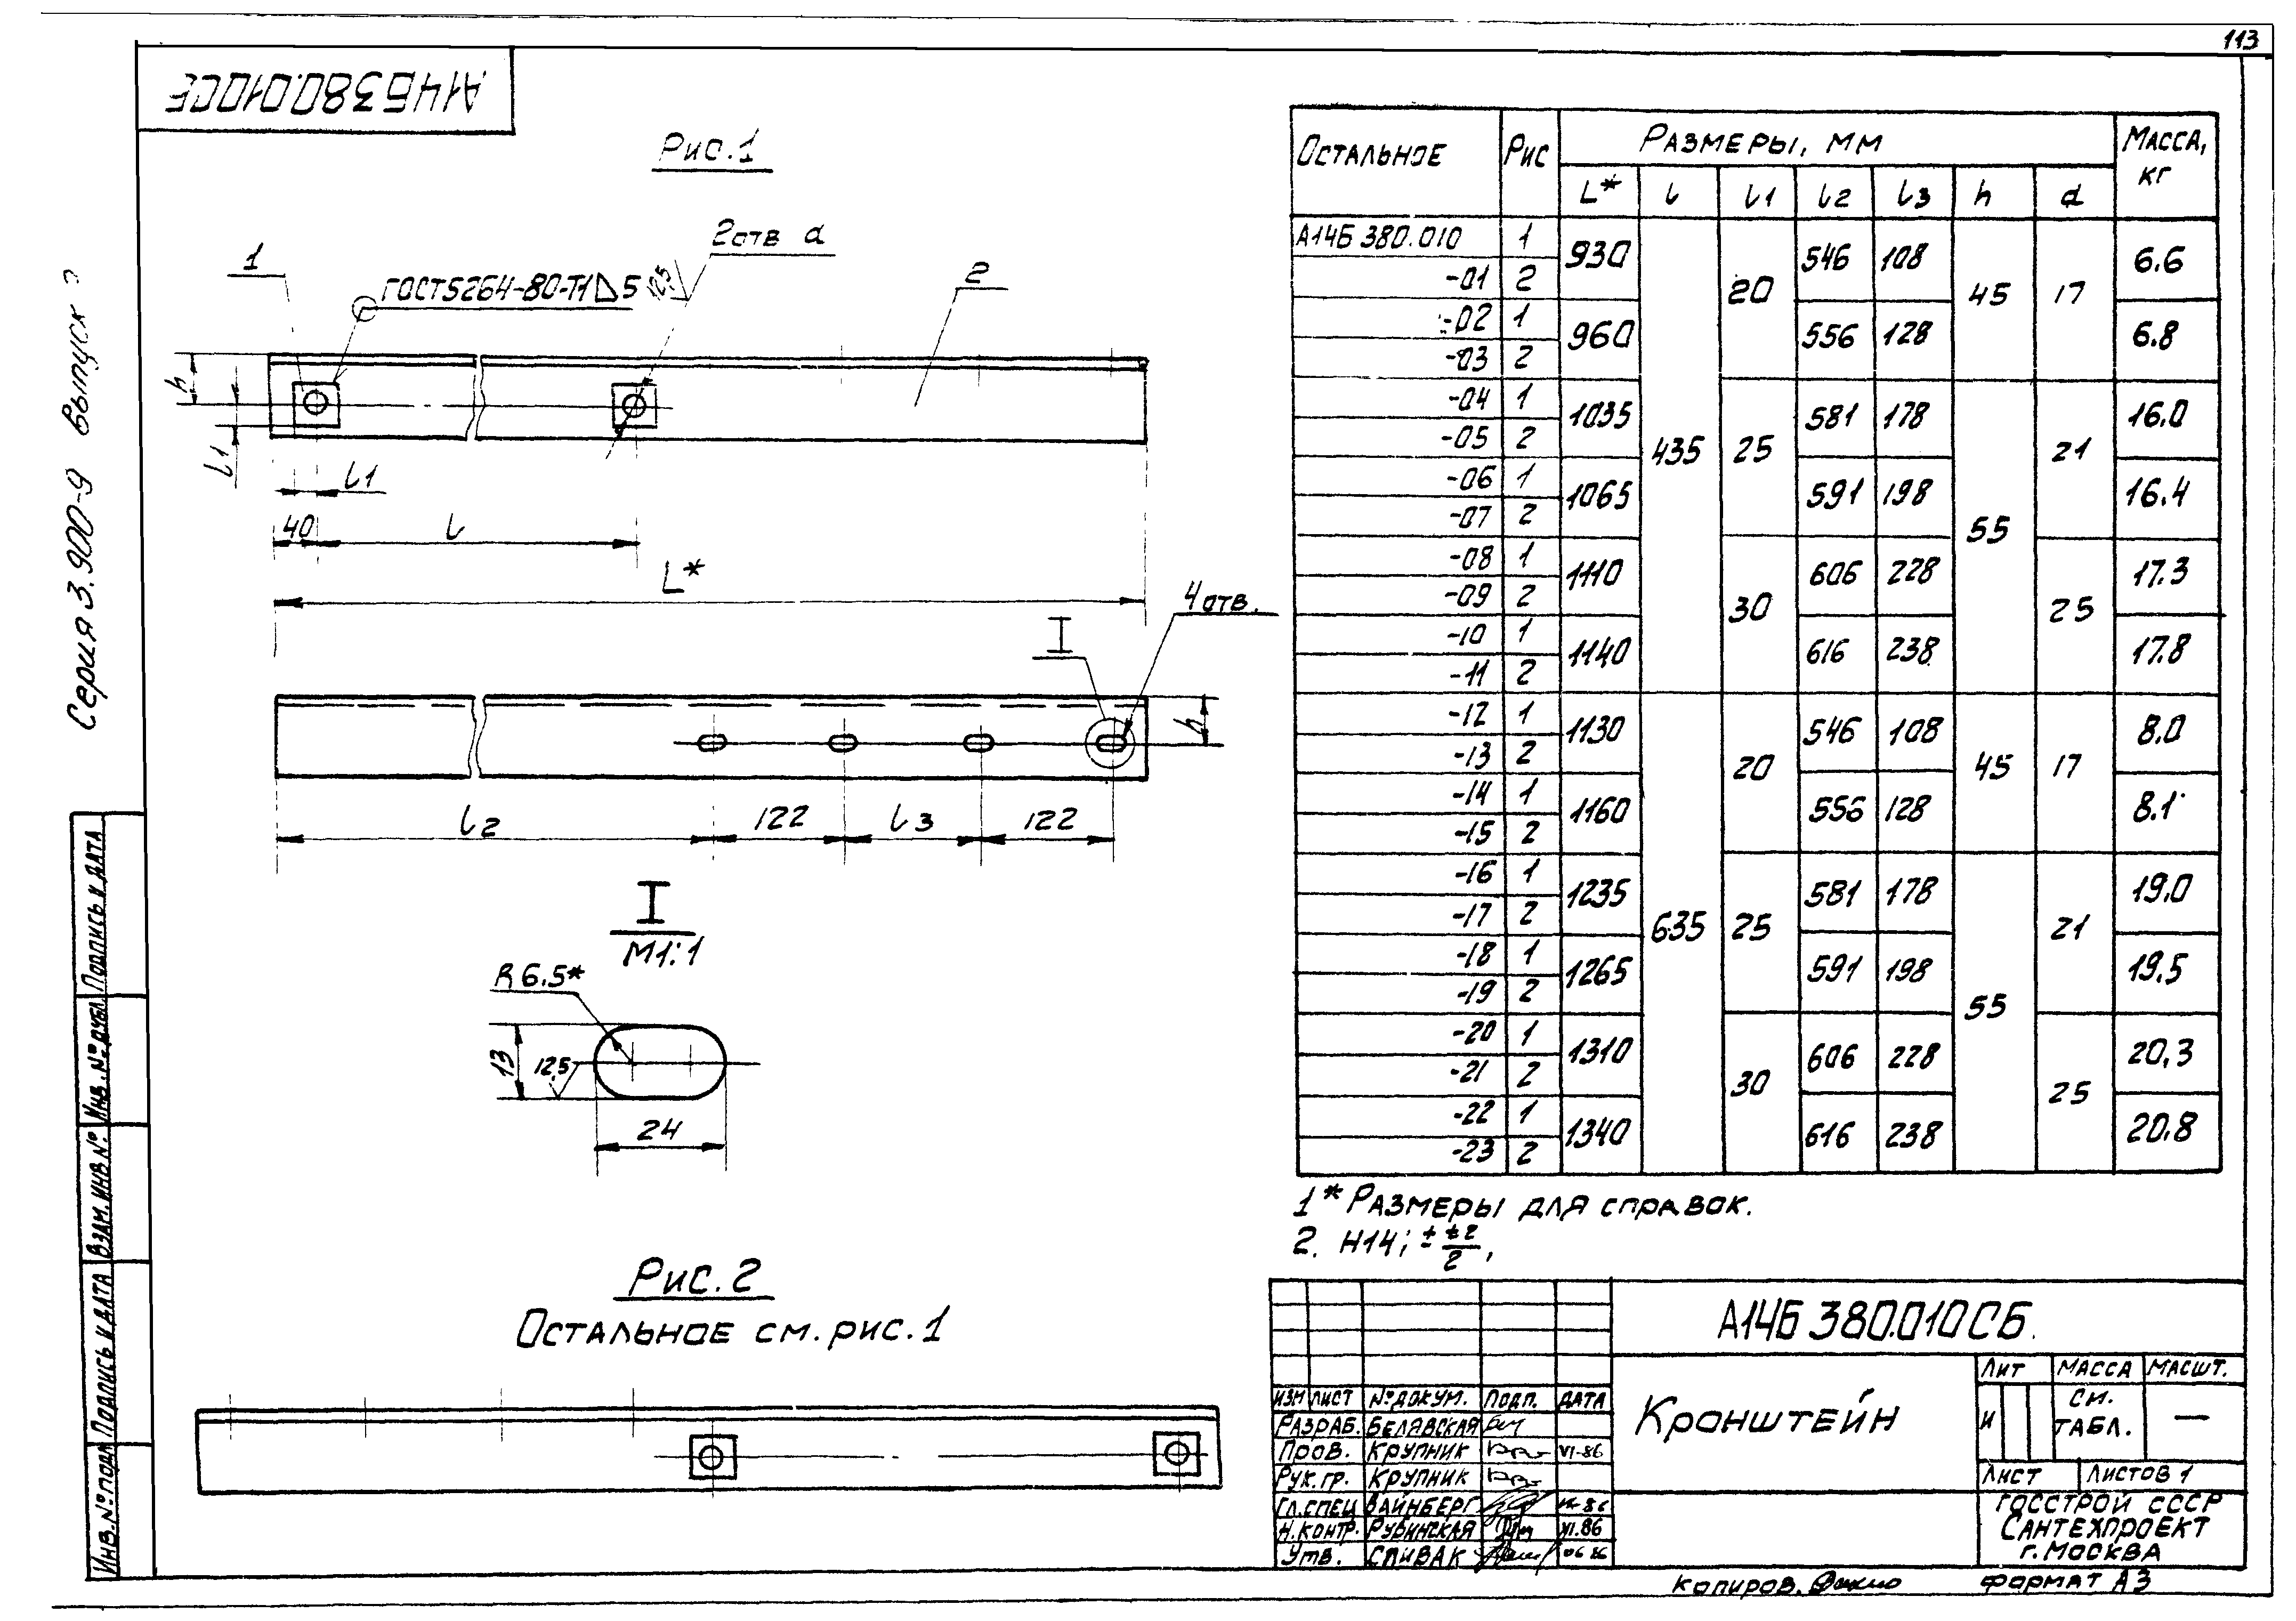 113
А14Б380.010СБ
Рис.1
1
ГОСТ5264-80-Т1 5
2отв d
12,5
2
h
l1
l1
40
l
L*
4 отв.
I
h
l2
122
l3
122
I
М1:1
R 6.5*
13
12,5
24
Рис.2
Остальное см. рис.1
Серия 3.900-9 выпуск
Остальное Рис Размеры, мм Масса, кг
L* l l1 l2 l3 h d
А14Б 380.010 1 930 435 20 546 108 45 17 6.6
-01 2
-02 1 960 556 128 6.8
-03 2
-04 1 1035 25 581 178 55 21 16.0
-05 2
-06 1 1065 591 198 16.4
-07 2
-08 1 1110 30 606 228 25 17.3
-09 2
-10 1 1140 616 238 17.8
-11 2
-12 1 1130 635 20 546 108 45 17 8.0
-13 2
-14 1 1160 556 128 8.1
-15 2
-16 1 1235 25 581 178 55 21 19.0
-17 2
-18 1 1265 591 198 19.5
-19 2
-20 1 1310 30 606 228 25 20,3
-21 2
-22 1 1340 616 238 20.8
-23 2
1* Размеры для справок.
2. H14; ± t2/2.
А14Б 380.010СБ
Кронштейн
Лит Масса Масшт.
И См. табл. —
Лист Листов 1
Госстрой СССР
Сантехпроект
г. Москва
Изм Лист № докум. Подп. Дата
Разраб. Белявская
Пров. Крупник VI-86
Рук.гр. Крупник
Гл.спец Вайнберг
Н.контр. Рубинская VI.86
Утв. Спивак 06 86
Копиров. Формат А3
Подпись и дата
Инв. № дубл.
Взам. инв №
Подпись и дата
Инв. № подл